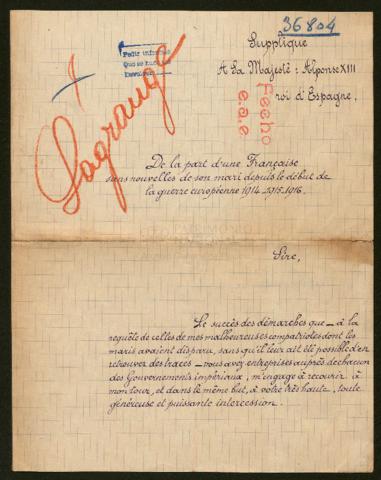 36804
Supplique
A Sa Majesté : Alphonse XIII
roi d'Espagne.
Pedir informes
Que se
Lagrange
Fecho
e.a.e.
De la part d'une Française
sans nouvelles de son mari depuis le début de
la guerre européenne 1914-1915-1916.
Sire,
Le succès des démarches que - à la
requête de celles de mes malheureuses compatriotes dont les
maris avaient disparu, sans qu'il leur ait été possible d'en
retrouver des traces - vous avez entreprises auprès de chacun
des Gouvernements impériaux, m'engage à recourir à
mon tour, et dans le même but, à votre très haute, toute
généreuse et puissante intercession.